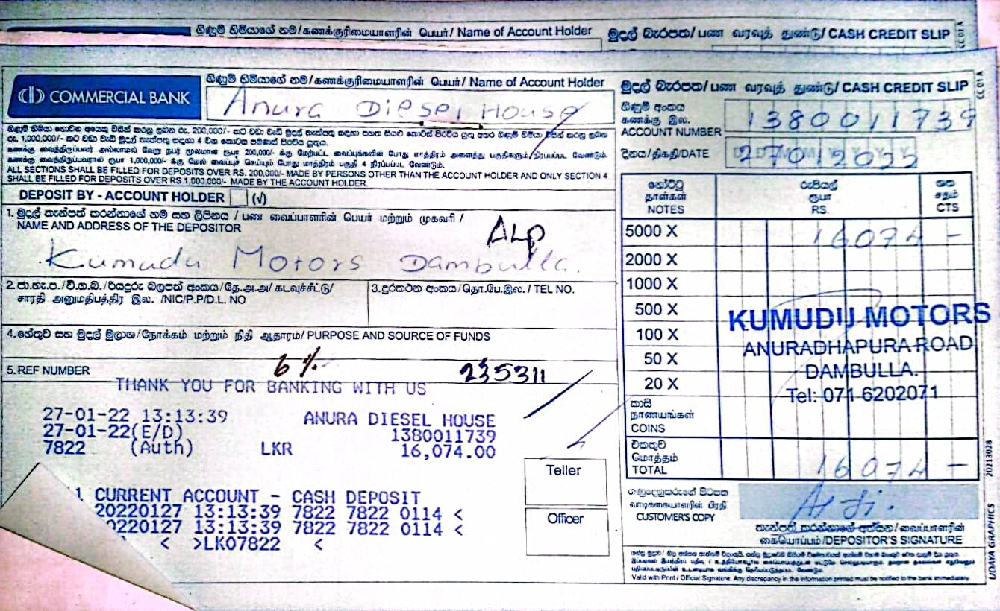 ගිණුම් හිමියාගේ නම/கணக்குரிமையாளரின் பெயர்/ Name of Account Holder
මුදල් බැරපත/ பண வரவுத் துண்டு/ CASH CREDIT SLIP
CC 01 A
COMMERCIAL BANK
ගිණුම් හිමියාගේ නම /கணக்குரிமையாளரின் பெயர்/ Name of Account Holder
Anura Diesel House
මුදල් බැරපත/பண வரவுத் துண்டு/ CASH CREDIT SLIP
CC 01 A
ගිණුම් අංකය
கணக்கு இல.
ACCOUNT NUMBER
1380011739
දිනය/திகதி/DATE
27012022
ALL SECTIONS SHALL BE FILLED FOR DEPOSITS OVER RS. 200,000/- MADE BY PERSONS OTHER THAN THE ACCOUNT HOLDER AND ONLY SECTION 4
SHALL BE FILLED FOR DEPOSITS OVER RS 1,000,000/- MADE BY THE ACCOUNT HOLDER.
DEPOSIT BY - ACCOUNT HOLDER (√)
1. මුදල් තැන්පත් කරන්නාගේ නම සහ ලිපිනය / பண வைப்பாளரின் பெயர் மற்றும் முகவரி /
NAME AND ADDRESS OF THE DEPOSITOR
ALP
Kumudu Motors Dambulla.
2.ජා.හැ.ප./වි.ග.බ./රියදුරු බලපත් අංකය/தே.அ.அ/ கடவுச்சீட்டு/
சாரதி அனுமதிபத்திர இல. /NIC/P.P/D.L. NO
3.දුරකථන අංකය/தொ.பே.இல./ TEL NO.
4.හේතුව සහ මුදල් මූලාශ්‍ර/நோக்கம் மற்றும் நிதி ஆதாரம்/ PURPOSE AND SOURCE OF FUNDS
5.REF NUMBER
6%
235311
THANK YOU FOR BANKING WITH US
27-01-22 13:13:39 ANURA DIESEL HOUSE
27-01-22(E/D) 1380011739
7822 (Auth) LKR 16,074.00
1 CURRENT ACCOUNT - CASH DEPOSIT
20220127 13:13:39 7822 7822 0114 <
0220127 13:13:39 7822 7822 0114 <
< >LK07822 <
Teller
Officer
නෝට්ටු
தாள்கள்
NOTES
රුපියල්
ரூபா
RS.
ශත
சதம்
CTS
5000 X 16074 -
2000 X
1000 X
500 X
100 X
50 X
20 X
කාසි
நாணயங்கள்
COINS
එකතුව
மொத்தம்
TOTAL 16074 -
KUMUDU MOTORS
ANURADHAPURA ROAD
DAMBULLA.
Tel: 071-6202071
ගනුදෙනුකරුගේ පිටපත
வாடிக்கையாளரின் பிரதி
CUSTOMER'S COPY
තැන්පත් කරන්නාගේ අත්සන/வைப்பாளரின்
கையொப்பம்/DEPOSITOR'S SIGNATURE
Valid with Print / Officer Signature. Any discrepancy in the information printed must be notified to the bank immediately
UDAYA GRAPHICS 20213028